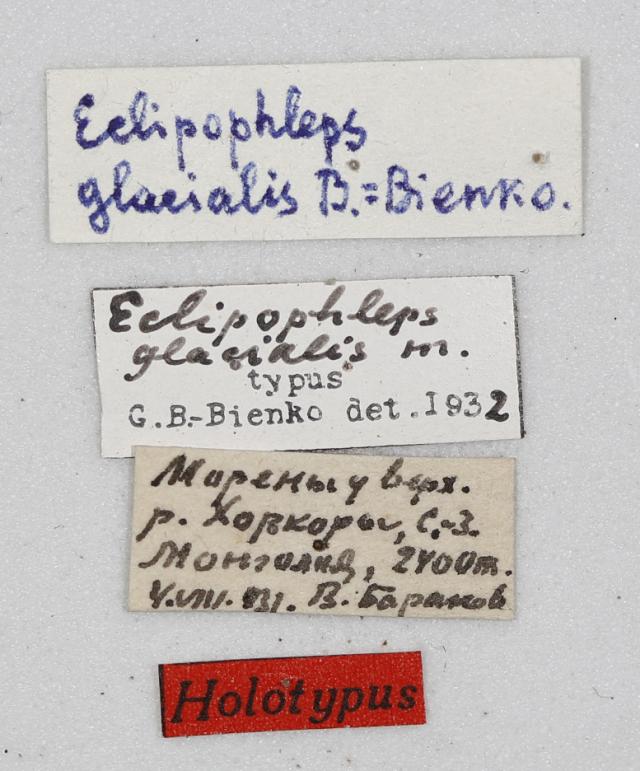 Eclipophleps
glacialis B.=Bienko.
Eclipophleps
glacialis m.
typus
G.B.-Bienko det.I932
Морены у верх.
р. Харкоры, С.-З.
Монголия, 2400m.
4.VIII.31. В. Баранов
Holotypus